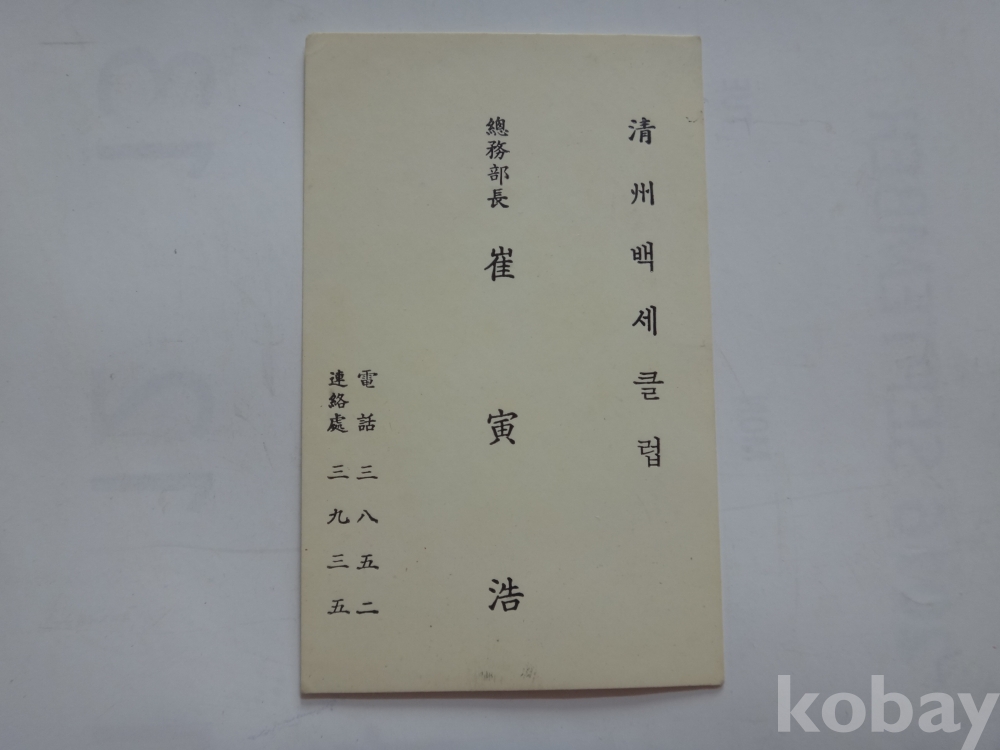 清州백세클럽
總務部長 崔寅浩
電話 三八五二
連絡處 三九三五
kobay